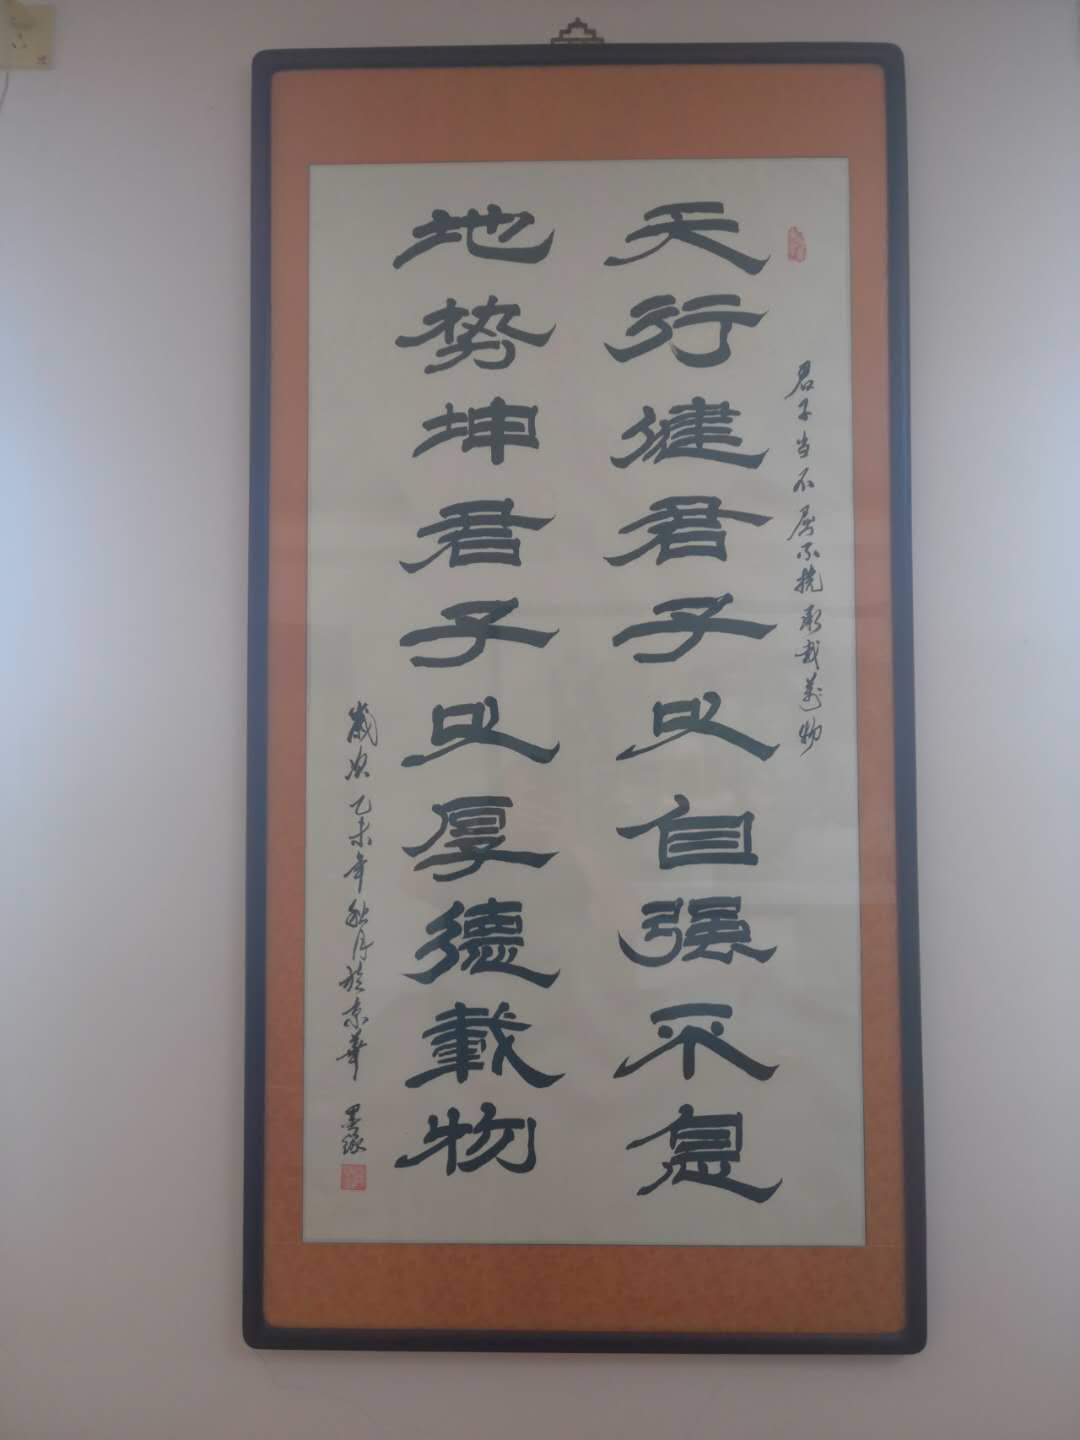 君子当不屈不挠承载万物
天行健君子以自强不息
地势坤君子以厚德载物
岁次乙未年秋月於京華 墨缘